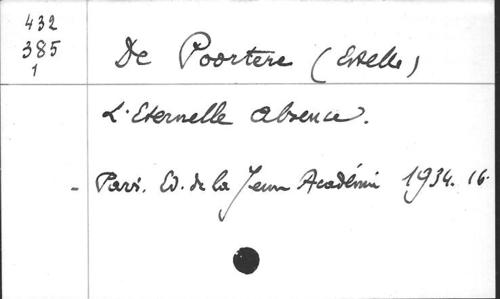 432
385
1
De Poortere (Estelle)
L'Eternelle Absence.
- Paris. Ed. de la Jeune Académie 1934. 16.